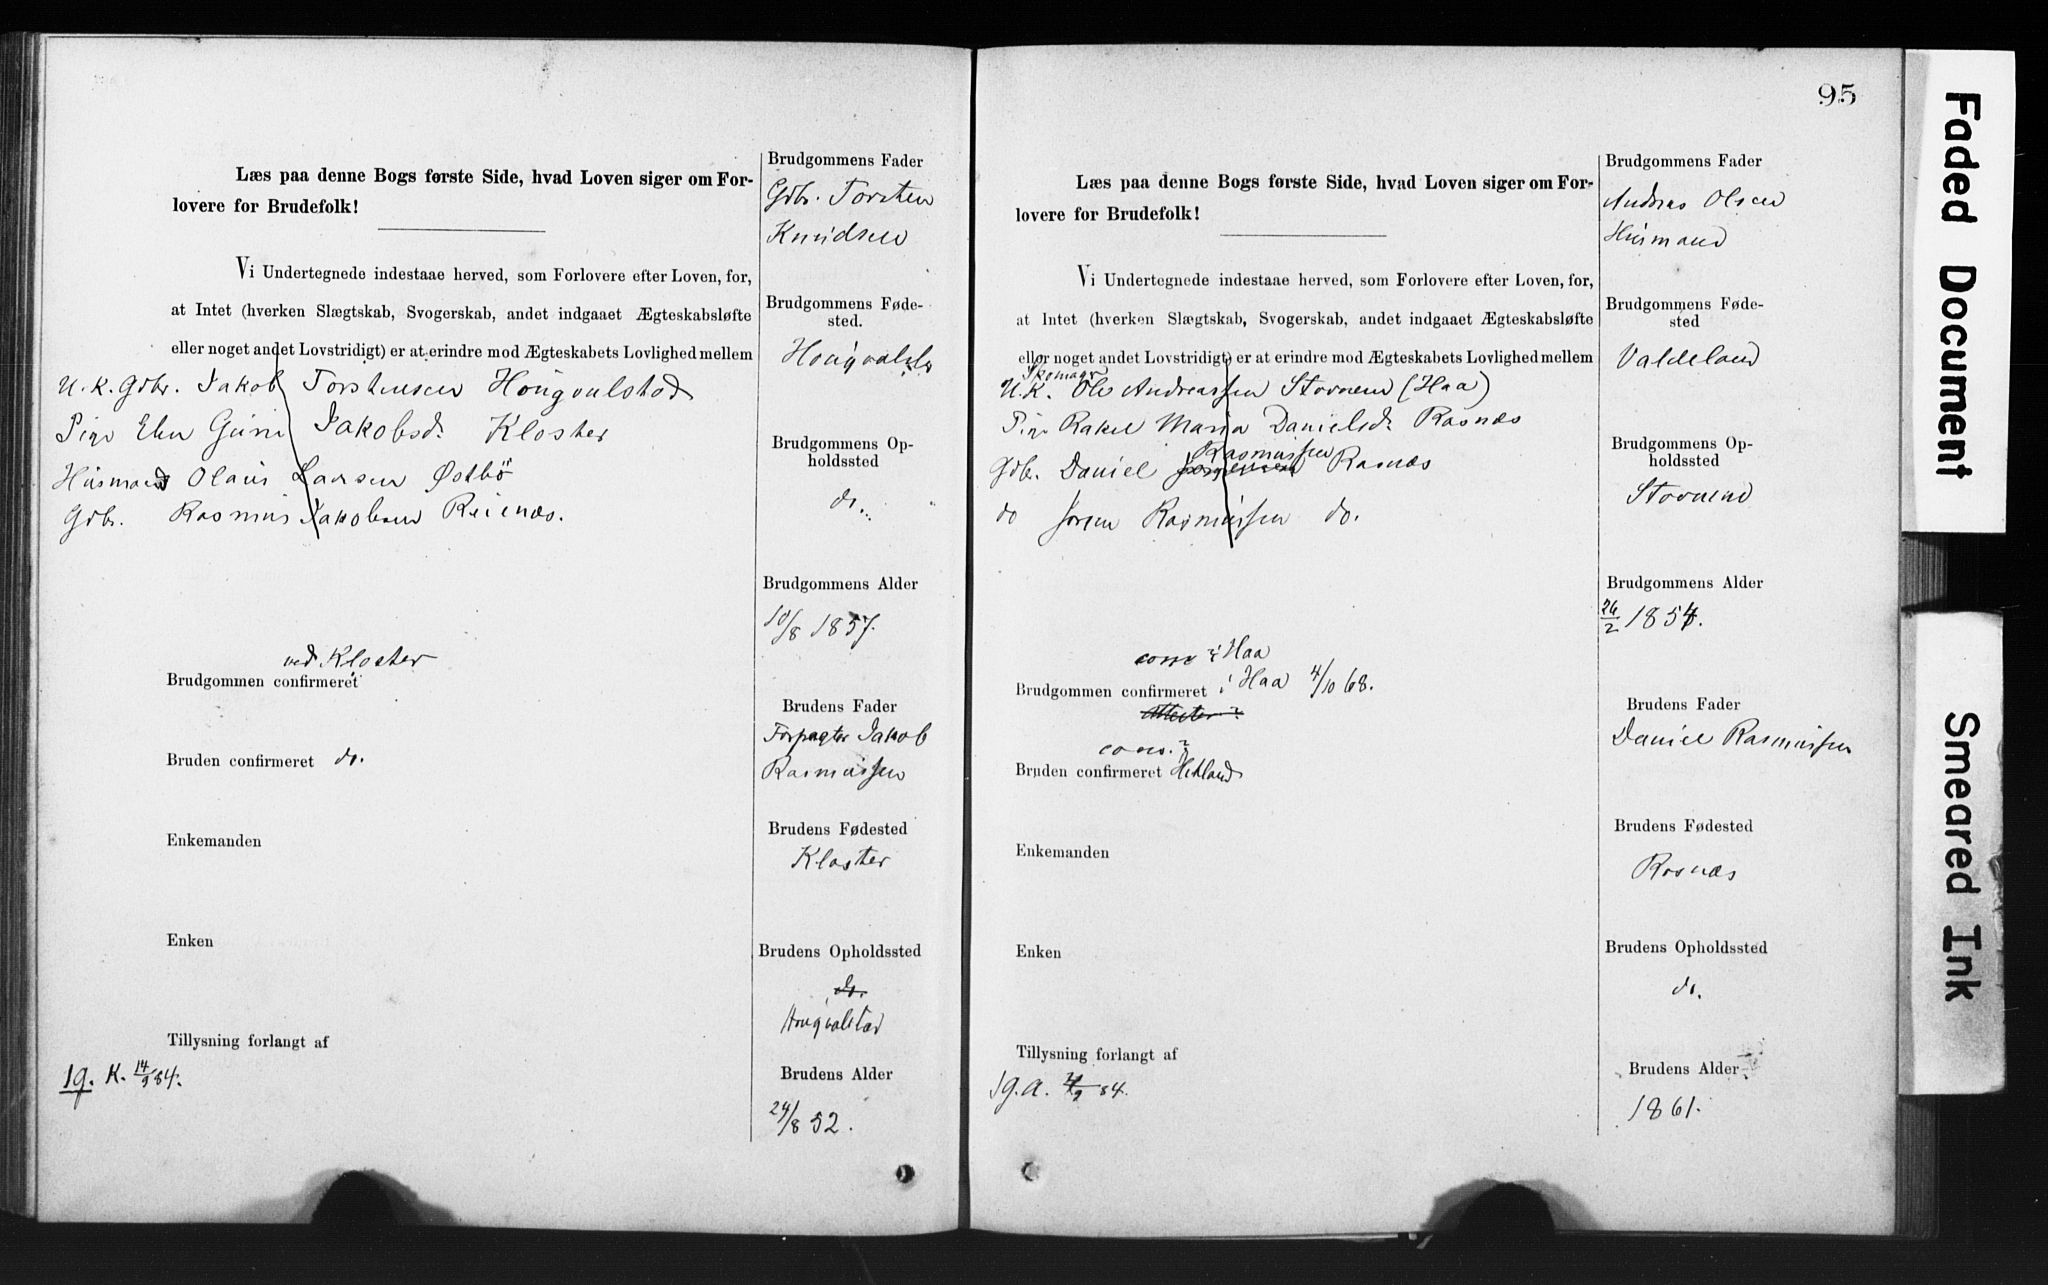 Læs paa denne Bogs første Side, hvad Loven siger om For-
lovere for Brudefolk!
Vi Undertegnede indestaae herved, som Forlovere efter Loven, for,
at Intet (hverken Slægtskab, Svogerskab, andet indgaaet Ægteskabsløfte
eller noget andet Lovstridigt) er at erindre mod Ægteskabets Lovlighed mellem
U.k. Gdbr. Jakob Torstensen Hougvalstad
Pige Elen Jakobsd. Kloster
Husmand Olaus Larsen Østbø
Gdbr. Rasmus Jakobsen Reienæs.
ved Kloster
Brudgommen confirmeret
Bruden confirmeret do.
Enkemanden
Enken
Tillysning forlangt af
19. K. 14/9 84.
Brudgommens Fader
Gdbr. Torsten
Knudsen
Brudgommens Føde-
sted.
Brudgommens Op-
holdssted
do.
Brudgommens Alder
10/8 1857.
Brudens Fader
Forpagter Jakob
Rasmussen
Brudens Fødested
Kloster
Brudens Opholdssted
do.
Hougvalstad
Brudens Alder
24/8 52.
95
Læs paa denne Bogs første Side, hvad Loven siger om For-
lovere for Brudefolk!
Vi Undertegnede indestaae herved, som Forlovere efter Loven, for,
at Intet (hverken Slægtskab, Svogerskab, andet indgaaet Ægteskabsløfte
eller noget andet Lovstridigt) er at erindre mod Ægteskabets Lovlighed mellem
Skomager
U.k. Ole Andreassen Stovnem (Haa)
Pige Rakel Maria Danielsd. Rasnæs
Rasmussen
Gdbr. Daniel Rasnæs
do Søren Rasmussen do.
i Haa
Brudgommen confirmeret i Haa 4/10 68.
Attester?
Bruden confirmeret Hetland
Enkemanden
Enken
Tillysning forlangt af
19. a. 84.
Brudgommens Fader
Andreas Olsen
Husmand
Brudgommens Fød-
sted
Valdeland
Brudgommens Op-
holdssted
Stovnem
Brudgommens Alder
26/2 1854.
Brudens Fader
Daniel Rasmussen
Brudens Fødested
Rasnæs
Brudens Opholdssted
do.
Brudens Alder
1861.
Faded Document
Smeared Ink